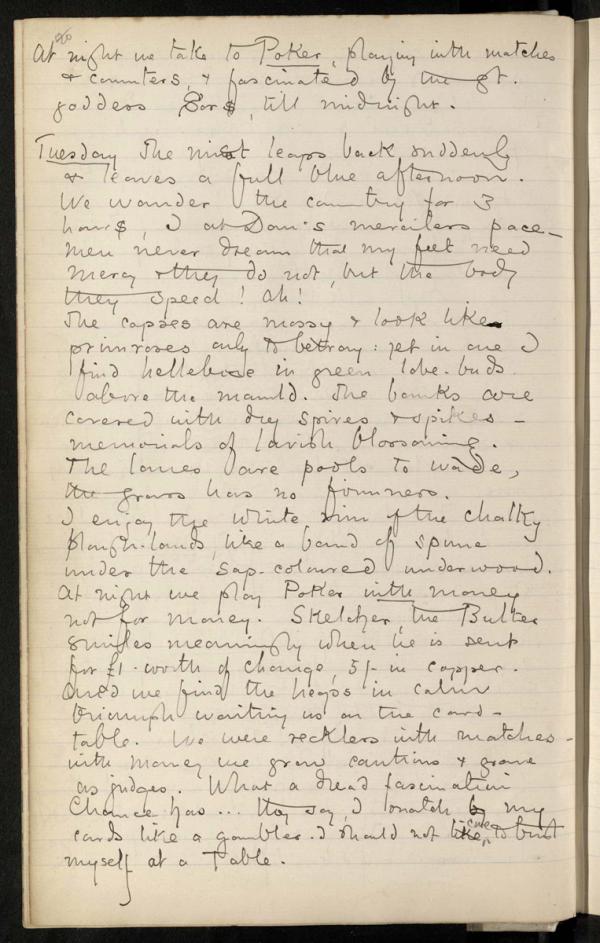 At night we take to Poker, playing with matches
& counters, & fascinated by the gt.
goddess Sors, till midnight.
Tuesday The mist leaps back suddenly
& leaves a full blue afternoon.
We wander the country for 3
hours, I at Dan's merciless pace –
men never dream that my feet need
mercy & they do not, but the body
they speed! Ah!
The copses are mossy & look like
primroses only to betray: yet in one I
find hellebore in green lobe-buds
above the mould. The banks are
covered with dry spires & spikes –
memorials of lavish blossoming.
The lanes are pools to wade,
the grass has no firmness.
I enjoy the white rim of the chalky
plough-lands, like a band of spume
under the sap-coloured underwood.
At night we play Poker with money
not for money. Sketcher, the Butler
smiles meaningly when he is sent
for £1-worth of change, 5/- in copper.
And we find the heaps in calm
triumph waiting us on the card-
table. We were reckless with matches –
with money we grow cautious & grave
as judges. What a dread fascination
Chance has ... they say, I snatch my
cards like a gambler. I should not care to trust
myself at a Table.